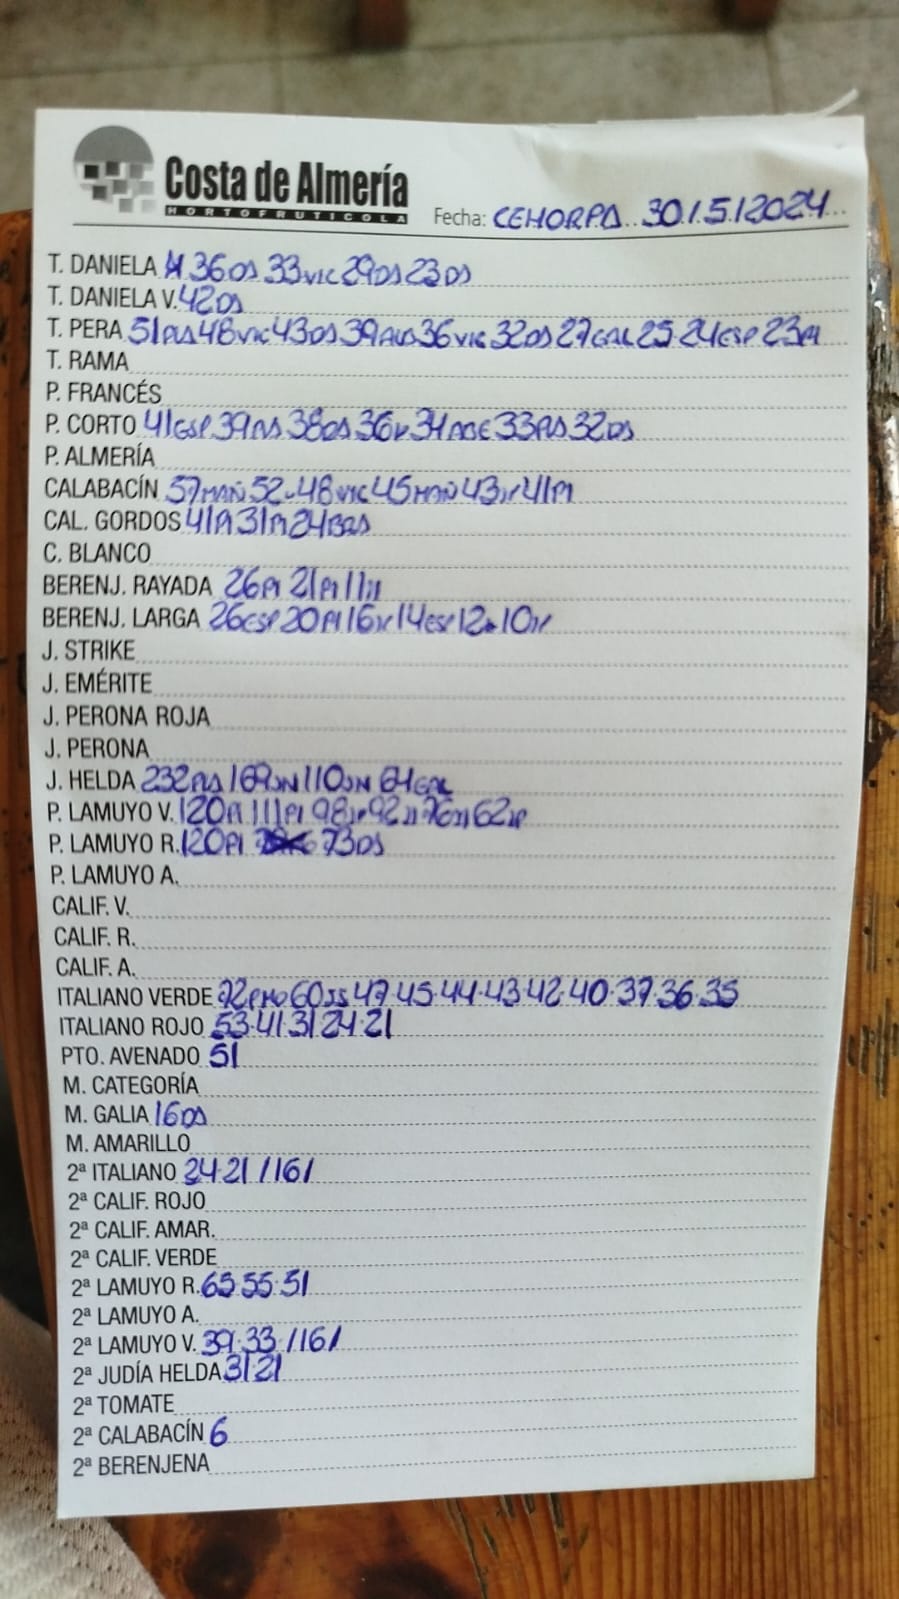 Costa de Almería
HORTOFRUTICOLA
Fecha: CEHORPA 30/5/2024
T. DANIELA 36DS 33VIC 29DS 23DS
T. DANIELA V. 42DS
T. PERA 51PLA 48VIC 43DS 39 36VIC 32DS 27GAL 25-24ESP 23PI
T. RAMA
P. FRANCÉS
P. CORTO 41ESP 39 38DS 36V 34 33 32DS
P. ALMERÍA
CALABACÍN 57MAÑ 52 48VIC 45MAÑ 43 41PI
CAL. GORDOS 41PI 31PI 24
C. BLANCO
BERENJ. RAYADA 26PI 21PI 11
BERENJ. LARGA 26ESP 20PI 16 14ESP 12 10
J. STRIKE
J. EMÉRITE
J. PERONA ROJA
J. PERONA
J. HELDA 232PLA 169JN 110JN 64GAL
P. LAMUYO V. 120PI 111PI 98 92 76 62
P. LAMUYO R. 120PI 73DS
P. LAMUYO A.
CALIF. V.
CALIF. R.
CALIF. A.
ITALIANO VERDE 72 60JS 47-45-44-43-42-40-37-36-35
ITALIANO ROJO 53-41-31-24-21
PTO. AVENADO 51
M. CATEGORÍA
M. GALIA 16DS
M. AMARILLO
2ª ITALIANO 24-21 /16/
2ª CALIF. ROJO
2ª CALIF. AMAR.
2ª CALIF. VERDE
2ª LAMUYO R. 65-55-51
2ª LAMUYO A.
2ª LAMUYO V. 39-33 /16/
2ª JUDÍA HELDA 31-21
2ª TOMATE
2ª CALABACÍN 6
2ª BERENJENA